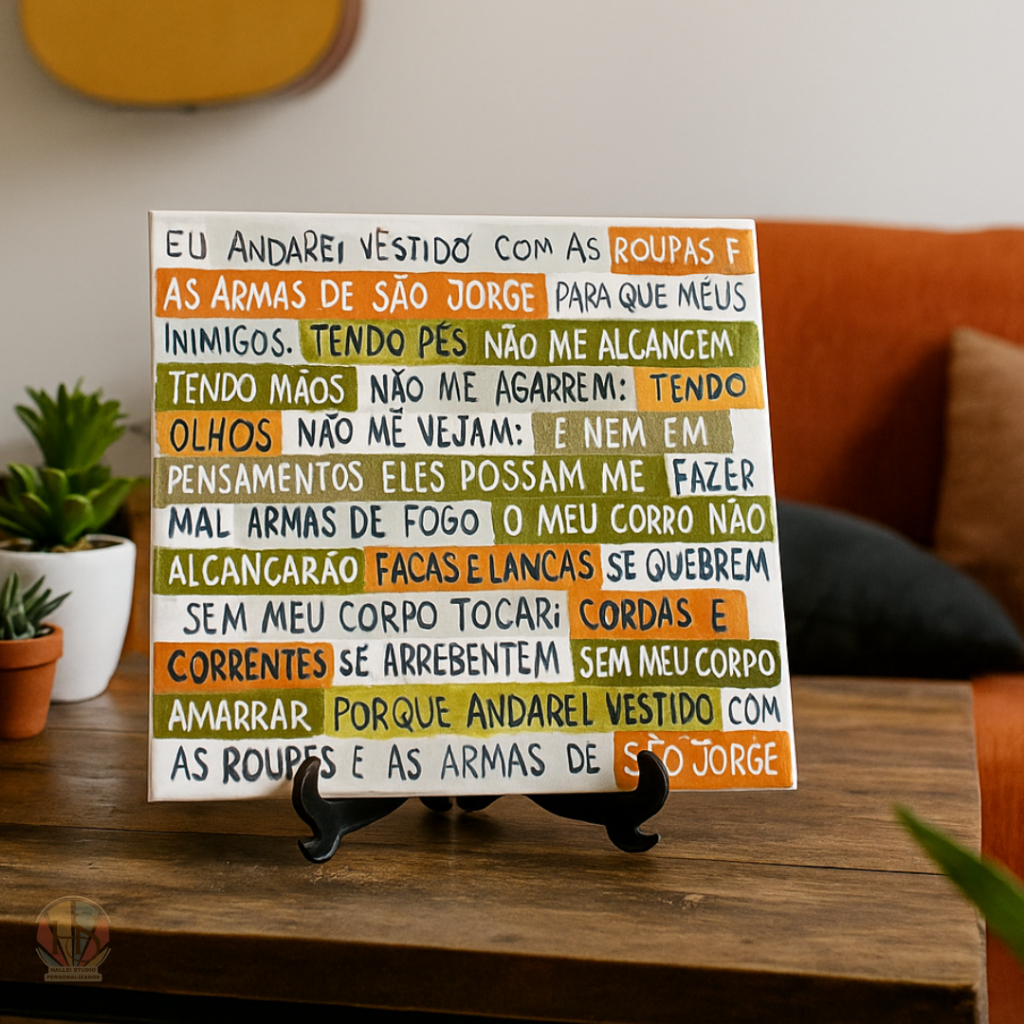 EU ANDAREI VESTIDO COM AS ROUPAS F
AS ARMAS DE SÃO JORGE PARA QUE MÉUS
INIMIGOS. TENDO PÉS NÃO ME ALCANCEM
TENDO MÃOS NÃO ME AGARREM: TENDO
OLHOS NÃO MẼ VEJAM: E NEM EM
PENSAMENTOS ELES POSSAM ME FAZER
MAL ARMAS DE FOGO O MEU CORRO NÃO
ALCANCARÃO FACAS E LANCAS SE QUEBREM
SEM MEU CORPO TOCARi CORDAS E
CORRENTES SE ARREBENTEM SEM MEU CORPO
AMARRAR PORQUE ANDAREL VESTIDO COM
AS ROUPES E AS ARMAS DE SÃO JORGE
HALLEI STUDIO
PERSONALIZADOS